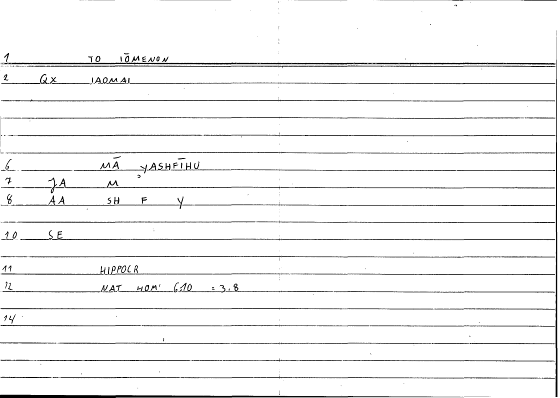 1 TO IŌMENON
2 QX IAOMAI
6 MĀ YASHFĪHU
7 JA M
8 AA SH F Y
10 SE
11 HIPPOCR
12 NAT HOM' 610 = 3.8
14